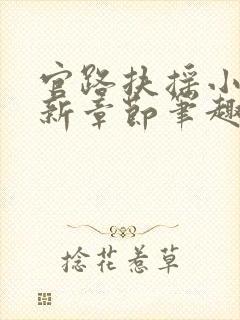 官路扶摇小
新章节笔趣
捻花惹草